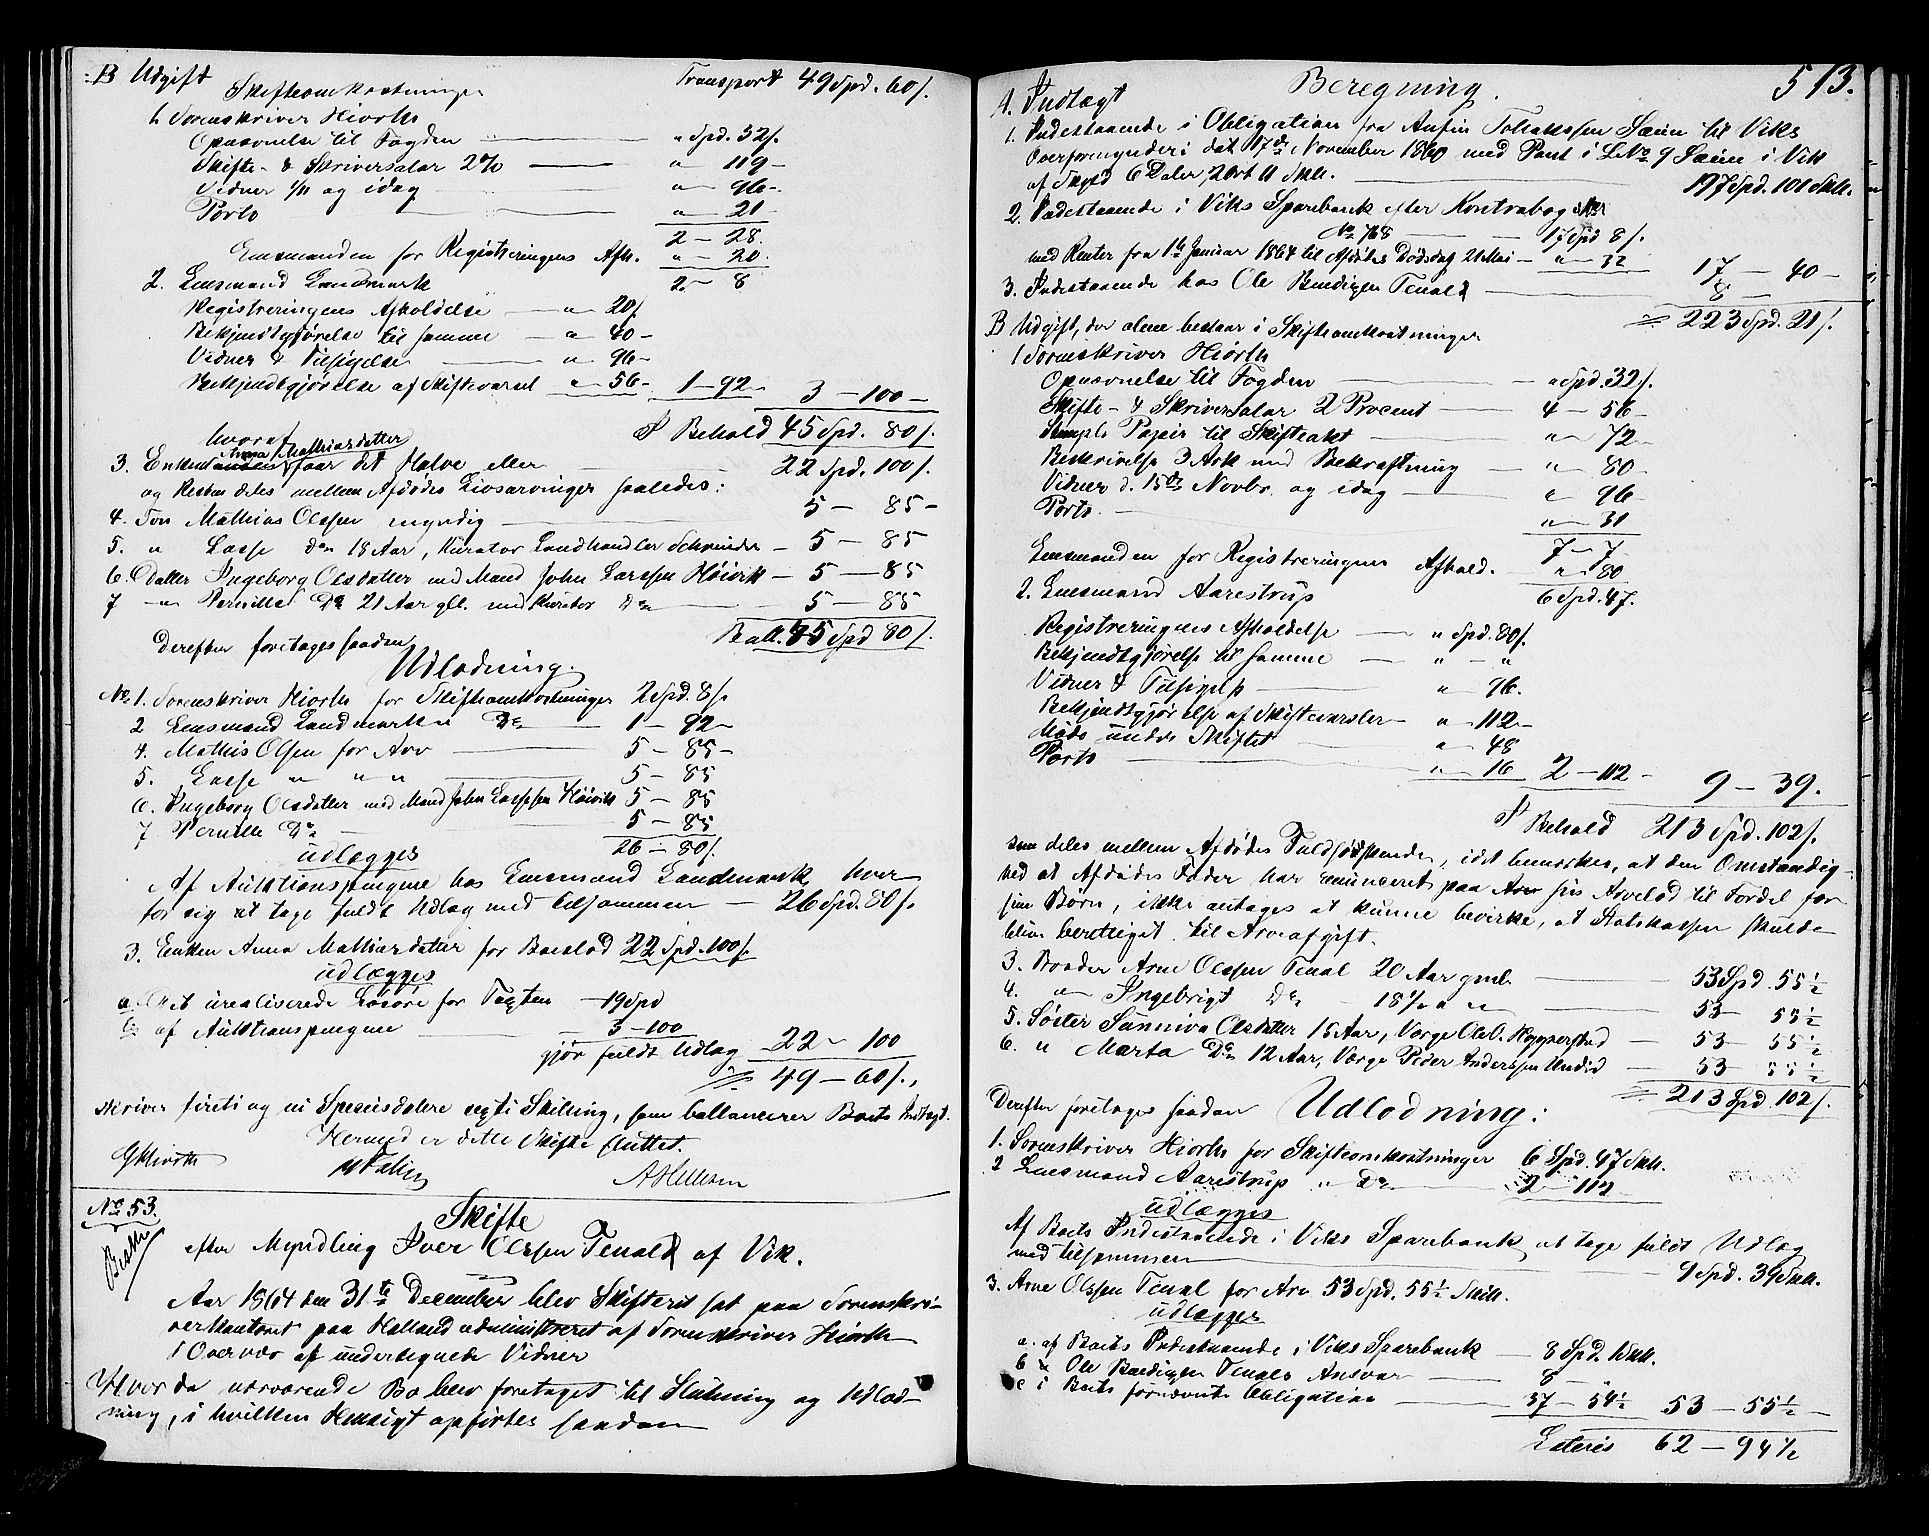 B Udgift Transport 49 Spd. 60 /.
Skifteomkostninger
1. Sorenskriver Hiorth
Opnævnelse til Fogden " Spd. 32 /.
Skifte- & Skriversalær 2% " – 119 –
Vidner 1/11 og idag " – 96 –
Porto " – 21
2 – 28.
Lensmanden for Registreringens Afh. " – 20.
2 – 8
2. Lensmand Landmark
Registreringens Afholdelse " 20 /
Bekjendtgjørelse til samme " 40 –
Vidner & Tilsigelse " 96 –
Bekjendtgjørelse af Skiftevarsel " 56 – 1 – 92 – 3 – 100 –
I Behold 45 Spd. 80 /.
hvoraf
3. Enken Anna Mathiasdatter faar det Halve eller 22 Spd. 100 /.
og Resten deles mellem Afdødes Livsarvinger saaledes:
4. Søn Mathias Olssen myndig 5 – 85 –
5. " Lasse den 18 Aar, Kurator Landhandler Schneider – 5 – 85
6. Datter Ingeborg Olsdatter med Mand John Larssen Høivik – 5 – 85
7 " Pernille Do 21 Aar gl. med Kurator Do 5 – 85
Ball. 45 Spd 80 /.
Derefter foretages saadan
Udlodning.
No 1. Sorenskriver Hiorth for Skifteomkostninger 2 Spd. 8 /.
2 Lensmand Landmark " Do 1 – 92 –
4. Mathis Olsen for Arv 5 – 85 –
5. Lasse " " " 5 – 85
6. Ingeborg Olsdatter med Mand John Larssen Høivik 5 – 85
7 Pernille Do 5 – 85
26 – 80 /.
udlægges
Af Auktionspengene hos Lensmand Landmark, hver
for sig at tage fuldt Udlæg med tilsammen – 26 Spd. 80 /.
3. Enken Anna Mathiasdatter for Boeslod 22 Spd. 100 /.
udlægges
a. Det urealiserede Løsøre for Taxten – 19 Spd
b. af Auktionspengene 3 – 100
gjør fuldt Udlæg 22 – 100
49 – 60 /.,
skriver firetiog ni Speciedalere sexti Skilling, som ballancerer Boets Indtægt.
Hermed er dette Skifte sluttet.
G Hiorth A Hillesen
No 53.
Skifte
efter Myndling Iver Olssen Tenald af Vik.
Aar 1864 den 31te December blev Skifteret sat paa Sorenskri-
verkontoret paa Husland administreret af Sorenskriver Hiorth
i Overvær af undertegnede Vidner
Hvor da nærværende Bo blev foretaget til Slutning og Udlod-
ning, i hvilken Hensigt opførtes saadan
513.
Beregning.
A. Indtægt
1. Indestaaende i Obligation fra Anfin Tollakssen Sæim til Viks
Overformynderi dat. 17de November 1860 med Pant i LNo 9 Sæim i Vik
af Skyld 6 Daler 2 Ort 11 Skill. 197 Spd. 101 Skill.
2. Indestaaende i Viks Sparebank efter Kontrabog
No 768 17 Spd 8 /.
med Renter fra 1te Januar 1864 til Afdødes Dødsdag 21 Mai – " – 32 17 – 40 –
3. Indestaaende hos Ole Bendigsen Tenald 8 –
223 Spd. 21 /.
B Udgift, der alene bestaar i Skifteomkostninger
1 Sorenskriver Hiorth
Opnævnelse til Fogden " Spd. 32 /.
Skifte- & Skriversalær 2 Procent 4 – 56 –
Stemplt Papir til Skifteaktet " – 72 –
Beskrivelse 3 Ark med Bekræftning " – 80 –
Vidner d. 15de Novbr. og idag " – 96
Porto " – 31
7 – 7
Lensmanden for Registreringens Afhold. " – 80
6 Spd. 47.
2. Lensmand Aarestrup
Registreringens Afholdelse " Spd. 80 /.
Bekjendtgjørelse til samme " – "
Vidner & Tilsigelse " 96.
Bekjendtgjørelse af Skiftevarsler – " – 112 –
Møde under Skiftet " – 48
Porto " – 16 2 – 112 – 9 – 39.
I Behold 213 Spd. 102 /.
som deles mellem Afdødes Fuldsødskende, idet bemærkes, at den Omstændig-
hed at Afdødes Fader har renunceret paa Arv sin Arvelod til Fordel for
sine Børn, ikke antages at kunne bevirke, at Statskassen skulde
blive berettiget til Arveafgift.
3. Broder Arne Olssen Tenal 20 Aar gml. 53 Spd. 55 ½
4. " Ingebrigt Do 18 ½ " " 53 – 55 ½
5. Søster Sunniva Olsdatter 15 Aar, Værge Ole O. Hoppersted 53 – 55 ½
6. " Marta Do 12 Aar, Værge Peder Anderssen Undid 53 – 55 ½
213 Spd 102 /.
Derefter foretages saadan Udlodning:
1. Sorenskriver Hiorth for Skifteomkostninger 6 Spd. 47 Skill.
2 Lensmand Aarestrup " Do 2 – 112
udlægges
Af Boets Indestaaende i Viks Sparebank at tage fuldt Udlæg
med tilsammen 9 Spd. 39 Skill.
3. Arne Olssen Tenal for Arv 53 Spd. 55 ½ Skill.
udlægges
a. af Boets Indestaaende i Viks Sparebank 8 Spd. 1 Skill.
b " Ole Bendigsen Tenals Ansvar 8 –
c i Boets fornævnte Obligation 37 – 54 ½ 53 – 55 ½
Lateris 62 – 94 ½